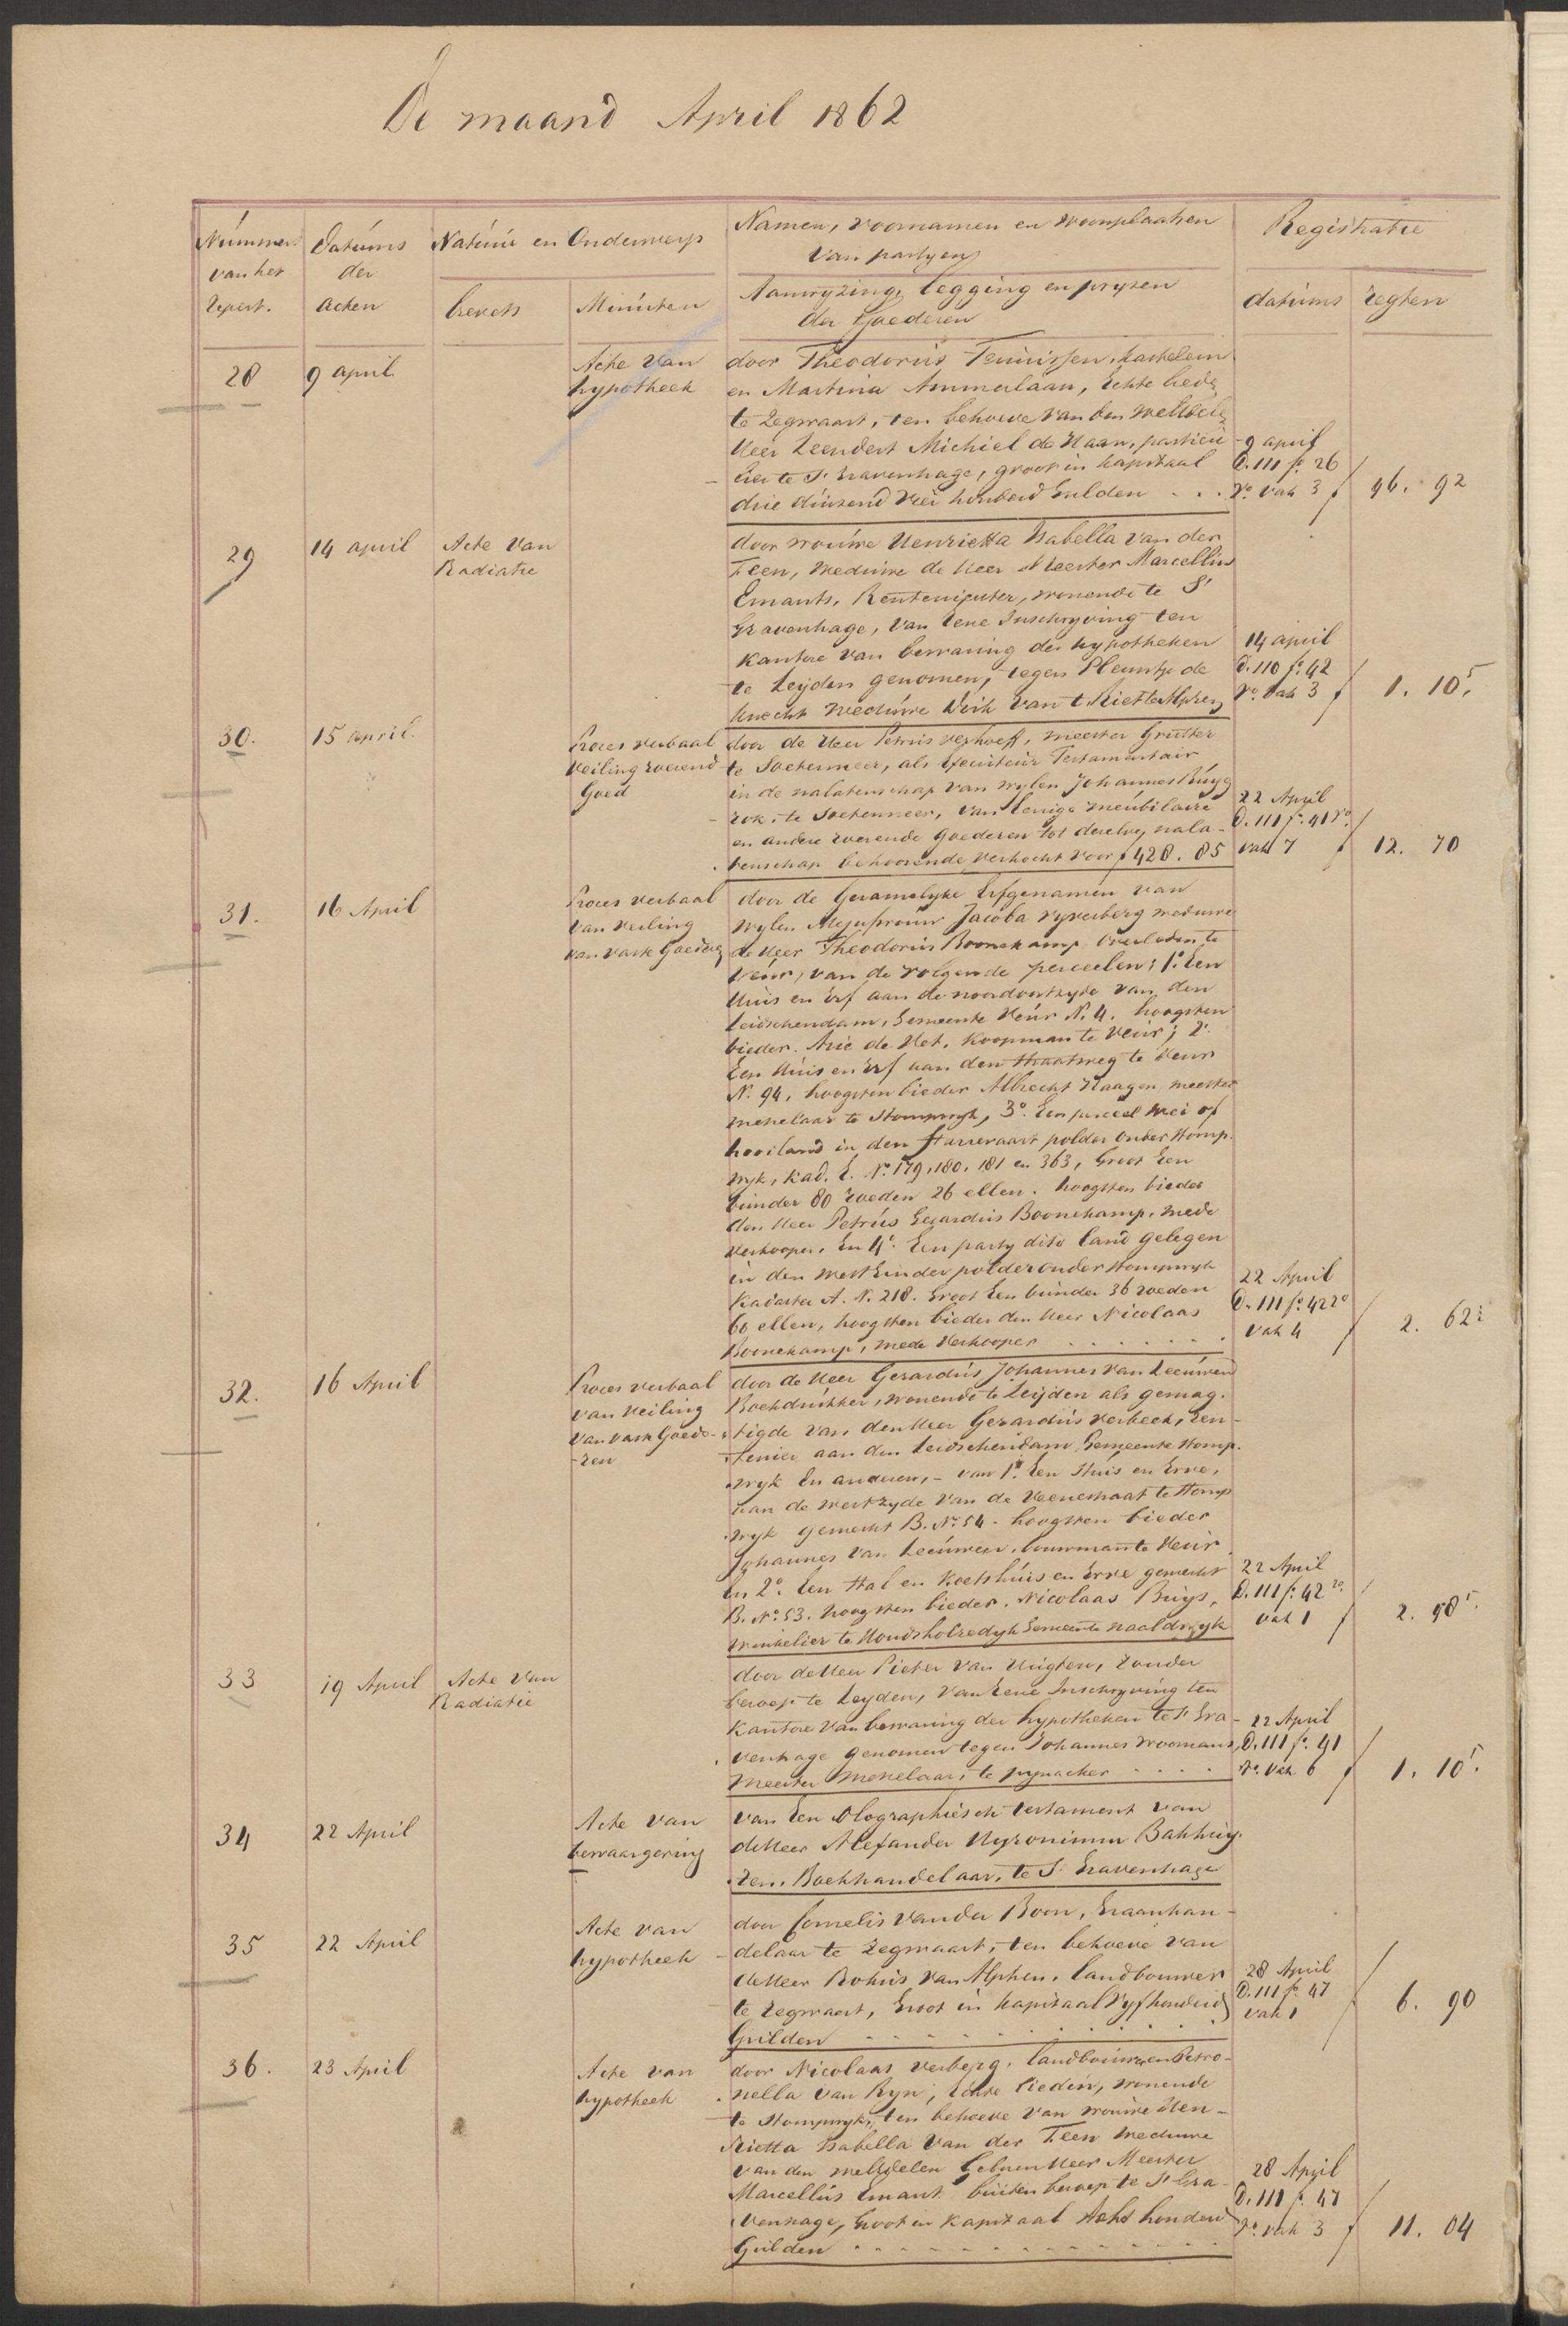 De maand April 1862
Nummer Datums Natuur en Onderwerp Namen, voornamen en woonplaatsen Registratie
van het der van partyen
Repert. acten brevets Minuten Aanwyzing, legging en pryzen datums regten
der Goederen
28 9 april Acte van door Theodorus Teunissen, kastelein
hypotheek en Martina Ammerlaan, Echte liede
te Zegwaart, ten behoeve van den
Heer Leendert Michiel de Haan, particu 9 april
lier te S Gravenhage, groot in kapitaal D. 111 fo. 26
drie duizend vier honderd Gulden ... ro. vak 3 f 46. 92
29 14 april Acte van door vrouwe Henrietta Isabella van der
Radiatie Feen, Weduwe de Heer Meester Marcellus
Emants, Rentenierster, wonende te S
Gravenhage, van Eene Inschryving ten
kantore van bewaring der hypotheken 14 april
te Leyden genomen, tegen Pleuntje de D. 110 fo. 42
Knecht Weduwe Dirk van t Riet te Alphen vo. vak 3 f 1. 10.5
30. 15 april. Proces verbaal door de Heer Petrus Verhoeff, meester Grutter
Veiling roerend te Soetermeer, als Executeur Testamentair
Goed in de nalatenschap van wylen Johannes Ruyg
rok, te Soetermeer, van Eenige meubilaire 22 April
en andere roerende Goederen tot derzelver nala- D. 111 fo. 41 vo.
tenschap behoorende, verkocht voor f 428. 85 vak 7 f 12. 70
31. 16 April Proces verbaal door de Gezamelyke Erfgenamen van
van Veiling wylen Mejufvrouw Jacoba Vyverberg weduwe
van vaste Goederen de Heer Theodorus Boonekamp overleden te
Veur, van de volgende perceelen; 1o. Een
Huis en Erf aan de noordoostzyde van den
Leidschendam, Gemeente Veur N. 4. hoogsten
bieder. Arie de Vet, koopman te Veur; 2o.
Een Huis en Erf aan den Straatweg te Veur
N. 94, hoogsten bieder Albrecht Haagen meester
metselaar te Stompwyk, 3o. Een perceel wei of
hooiland in den Starrevaart polder onder Stomp
wyk, kad. E. No. 179, 180, 181 en 363, Groot Een
bunder 80 roeden 26 ellen. hoogsten bieder
den Heer Petrus Gerardus Boonekamp, mede
Verkooper, En 4o. Een party dito land gelegen
in den Westeinder polder onder Stompwyk 22 April
Kadaster A. N. 218. Groot Een bunder 36 roeden D. 111 fo. 42 ro
60 ellen, hoogsten bieder den Heer Nicolaas vak 4 f 2. 62
Boonekamp, mede Verkooper ......
32. 16 April Proces verbaal door de Heer Gerardus Johannes van Leeuwen
van Veiling Boekdrukker, wonende te Leyden als gemag.
van vaste Goede- tigde van den Heer Gerardus Verbeek, ren-
-ren tenier aan den Leidschendam Gemeente Stomp.
wyk En anderen, - van 1o. Een Huis en Erve,
aan de westzyde van de Veenestraat te Stomp
wyk gemerkt B. No. 54 - hoogsten bieder
Johannes van Leeuwen, bouwman te Veur.
En 2o. Een Stal en Koetshuis en Erve gemerkt 22 April
B. No. 53. hoogsten bieder. Nicolaas Buys, D. 111 fo. 42 ro.
winkelier te Hondsholredyk Gemeente naaldwyk vak 1 f 2. 98 5.
33 19 April Acte van door de Heer Pieter van Vugten, zonder
Radiatie beroep te Leyden, van Eene Inschryving ten
kantore van bewaring der hypotheken te S Gra- 22 April
venhage genomen tegen Johannes Troomans, D. 111 fo. 41
Meester Metselaar, te Pynacker .... vo. vak 6 f 1. 10 5.
34 22 April Acte van van Een Olographiesch testament van
bewaargeving de Heer Alexander Hyronimus Bakhuy
zen, Boekhandelaar, te S Gravenhage
35 22 April Acte van door Cornelis van der Boon, Graanhan-
hypotheek delaar te Zegwaart, ten behoeve van
de Heer Bokus van Alphen, landbouwer 28 April
te Zegwaart, Groot in kapitaal Vyfhonderd D. 111 fo. 47
Gulden ........ vak 1 f 6. 90
36. 23 April Acte van door Nicolaas Verberg, landbouwer en Petro-
hypotheek nella van Ryn, Echte lieden, wonende
te Stompwyk, ten behoeve van vrouwe Hen-
rietta Isabella van der Feen Weduwe
van den weledelen Geboren Heer Meester 28 April
Marcellus Emants buiten beroep te S Gra- D. 111 fo. 47
venhage, Groot in Kapitaal Acht honderd ro. vak 3 f 11. 04
Gulden .........